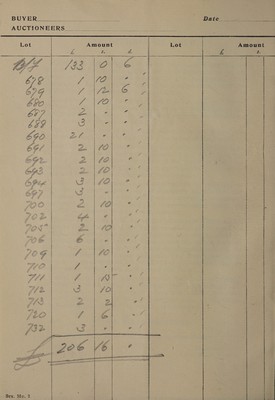 BUYER Date
AUCTIONEERS
Lot Amount Lot Amount
£ s. d. £ s. d.
B/f 133 0 6
678 1 10 •
679 1 12 6
680 1 10 •
687 2 • •
689 3 • •
690 21 • •
691 2 10 •
692 2 10 •
693 2 10 •
694 3 10 •
697 3 • •
700 2 10 •
702 4 • •
705 2 10 •
706 6 • •
709 1 10 •
710 1 • •
711 1 15 •
712 3 10 •
713 2 2 •
720 1 6 •
732 3 • •
£ 206 16 •